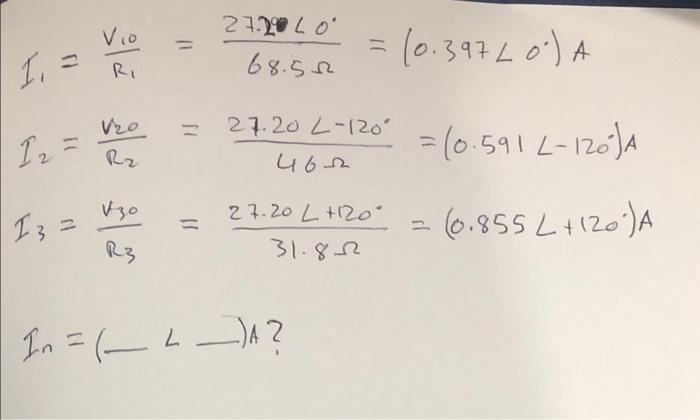 I1 = V10/R1 = 27.20∠0°/68.5Ω = (0.397∠0°) A
I2 = V20/R2 = 27.20∠-120°/46Ω = (0.591∠-120°)A
I3 = V30/R3 = 27.20∠+120°/31.8Ω = (0.855∠+120°)A
In = (__ ∠ __)A?